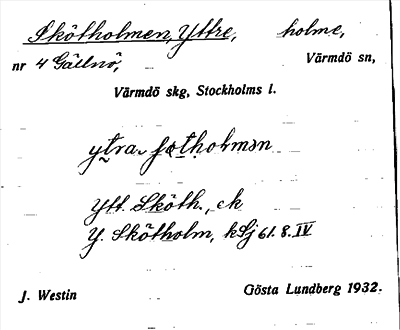 Skötholmen, Yttre, holme,
nr 4 Gällnö, Värmdö sn,
Värmdö skg, Stockholms l.
ytra ʃøtholmən
Ytt. Sköth., ek
Y. Skötholm, kSj 61.8.IV
J. Westin Gösta Lundberg 1932.